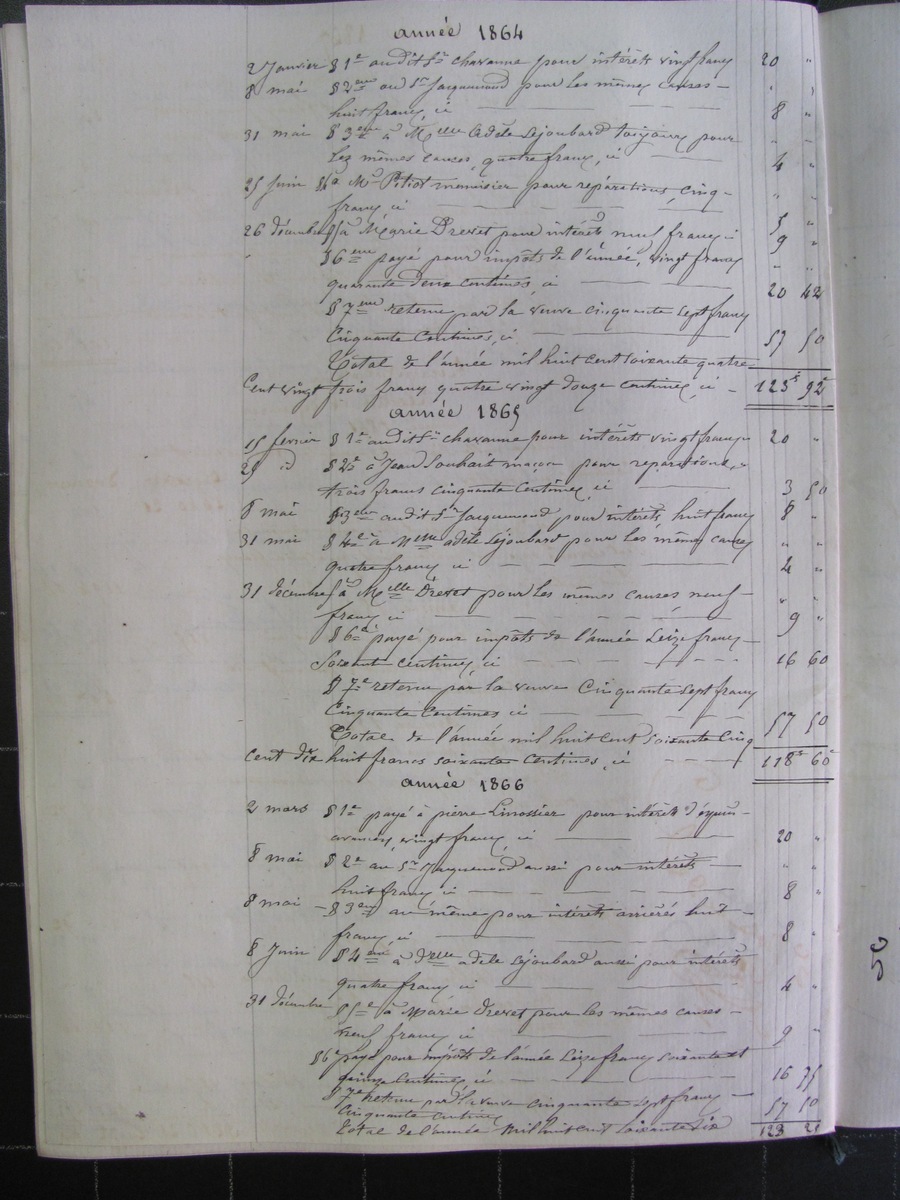 année 1864
2 Janvier § 1er audit Sr chavanne pour intérêts vingt francs 20 "
8 mai § 2eme au Sr Jacquemond pour les mêmes causes - " "
huit francs, ci 8 "
31 mai § 3eme à Melle Adèle Séjoubard toujours pour " "
les mêmes causes, quatre francs, ci 4 "
25 Juin § 4e à Mr menuisier pour réparations, cinq - " "
francs ci 5 "
26 décembre § 5 à Marie Drevet pour intérêts neuf francs ci 9 "
§ 6eme payé pour impôts de l'année, vingt francs " "
quarante deux centimes, ci 20 42
§ 7eme retenu par la veuve cinquante sept francs
Cinquante Centimes, ci 57 50
Total de l'année mil huit cent soixante quatre
Cent vingt trois francs quatre vingt douze centimes, ci - 123f 92c
année 1865
15 fevrier § 1er audit Sr chavanne pour intérêts vingt francs 20 "
25 id § 2e à Jean Souhait maçon pour reparations
trois francs cinquante centimes, ci 3 50
8 mai § 3eme audit Sr Jacquemond pour intérêts, huit francs 8 "
31 mai § 4e à Melle adèle Séjoubard pour les mêmes causes " "
quatre francs, ci 4 "
31 décembre § à Melle Drevet pour les mêmes causes neuf - " "
francs ci 9 "
§ 6e payé pour impôts de l'année Seize francs
Soixante centimes, ci 16 60
§ 7e retenu par la veuve Cinquante Sept francs
Cinquante Centimes ci 57 50
Total de l'année mil huit cent soixante Cinq
cent dix huit francs soixante centimes, ci 118f 60c
année 1866
2 mars § 1er payé à pierre Limossier pour intérêts
vingt francs, ci 20 "
8 mai § 2e au Sr Jacquemond aussi pour intérêts " "
huit francs ci 8 "
8 mai - § 3eme au même pour intérêts arriérés huit -
francs, ci 8 "
8 Juin § 4eme à Delle adèle Séjoubard aussi pour intérêts
quatre francs ci 4 "
31 décembre § 5e à Marie Drevet pour les mêmes causes -
neuf francs ci 9 "
§ 6e payé pour impôts de l'année Seize francs soixante et
quinze centimes ci 16 75
§ 7e Retenu par la veuve cinquante sept francs -
Cinquante centimes 57 50
Total de l'année Mil huit cent soixante Six 123 25